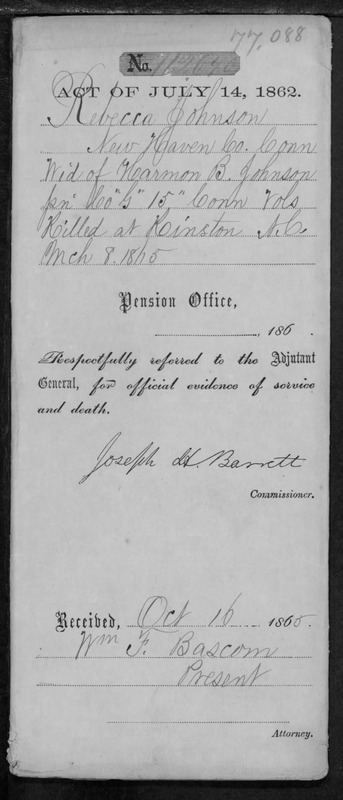 77,088
No.
ACT OF JULY 14, 1862.
Rebecca Johnson
New Haven Co. Conn
Wid of Harmon B. Johnson
Co "G" 15," Conn Vols
Killed at Kinston N.C.
Mch 8. 1865
Pension Office,
, 186 .
Respectfully referred to the Adjutant
General, for official evidence of service
and death.
Joseph H. Barrett
Commissioner.
Received, Oct 16 1865.
Wm F. Bascom
Present
Attorney.